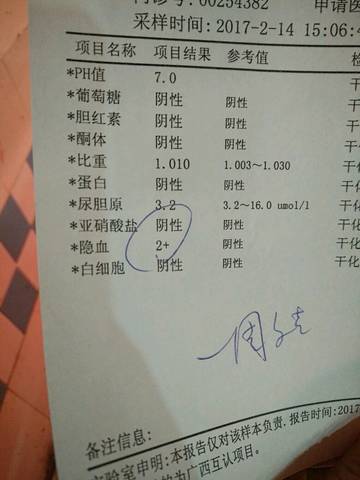 门诊号:00254382 申请医
采样时间:2017-2-14 15:06:4
项目名称 项目结果 参考值
*PH值 7.0 干
*葡萄糖 阴性 阴性 干化
*胆红素 阴性 阴性 干化
*酮体 阴性 阴性 干化
*比重 1.010 1.003~1.030 干化
*蛋白 阴性 阴性 干化
*尿胆原 3.2 3.2~16.0 umol/l 干化
*亚硝酸盐 阴性 阴性 干化
*隐血 2+ 阴性 干化
*白细胞 阴性 阴性 干化
备注信息:
实验室申明:本报告仅对该样本负责,报告时间:2017
为广西互认项目。